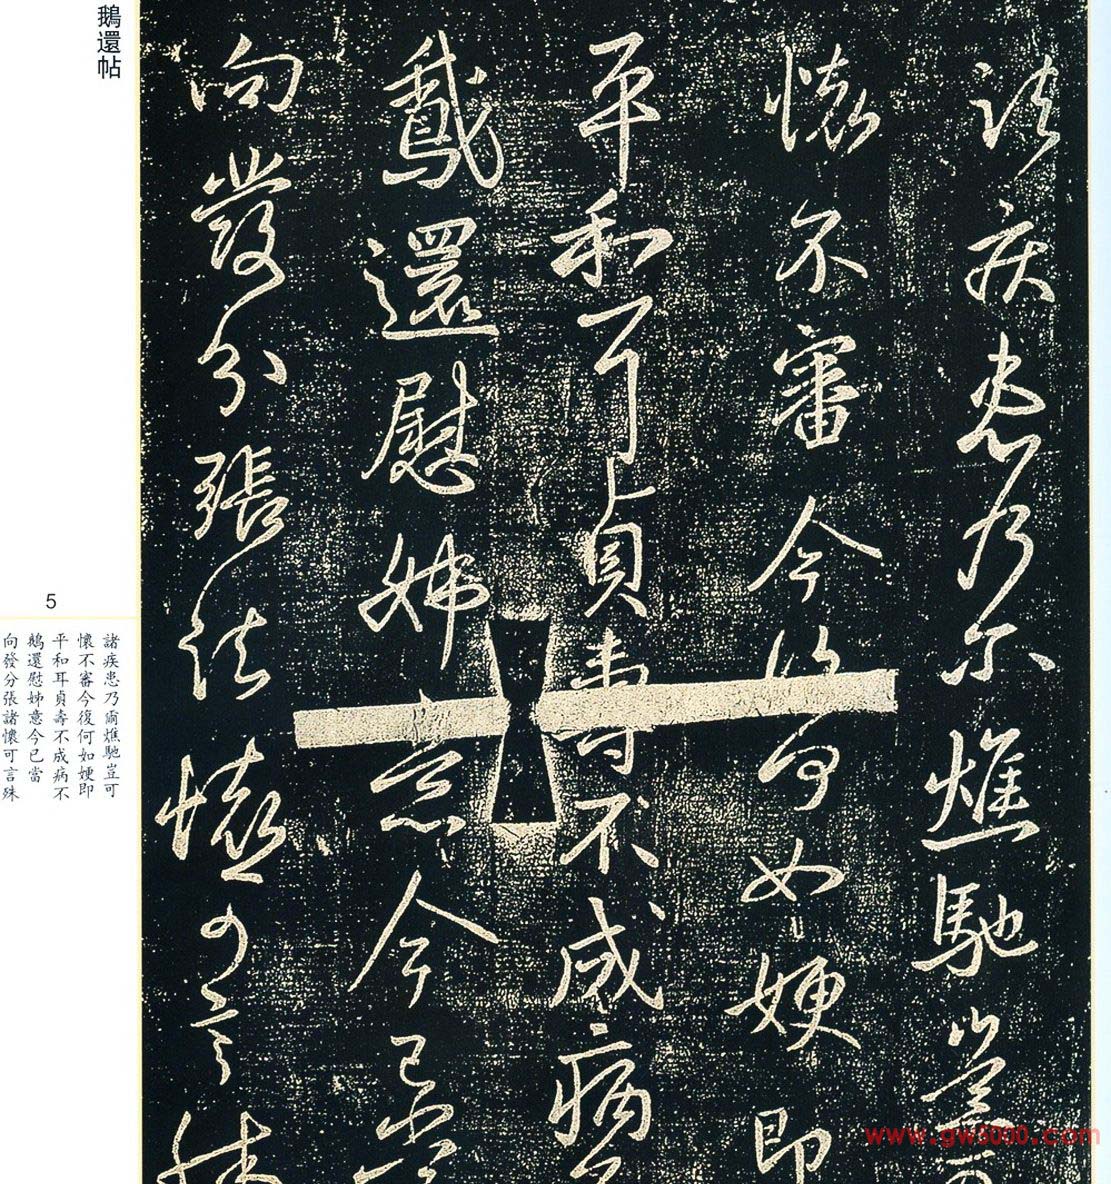 諸疾患乃爾燋馳豈可
懷不審今復何如㛐即
平和耳貞壽不成病不
鵝還慰姊意今已當
向發分張諸懷可言殊
鵝還帖
5
諸疾患乃爾燋馳豈可
懷不審今復何如㛐即
平和耳貞壽不成病不
鵝還慰姊意今已當
向發分張諸懷可言殊
www.gw5000.com